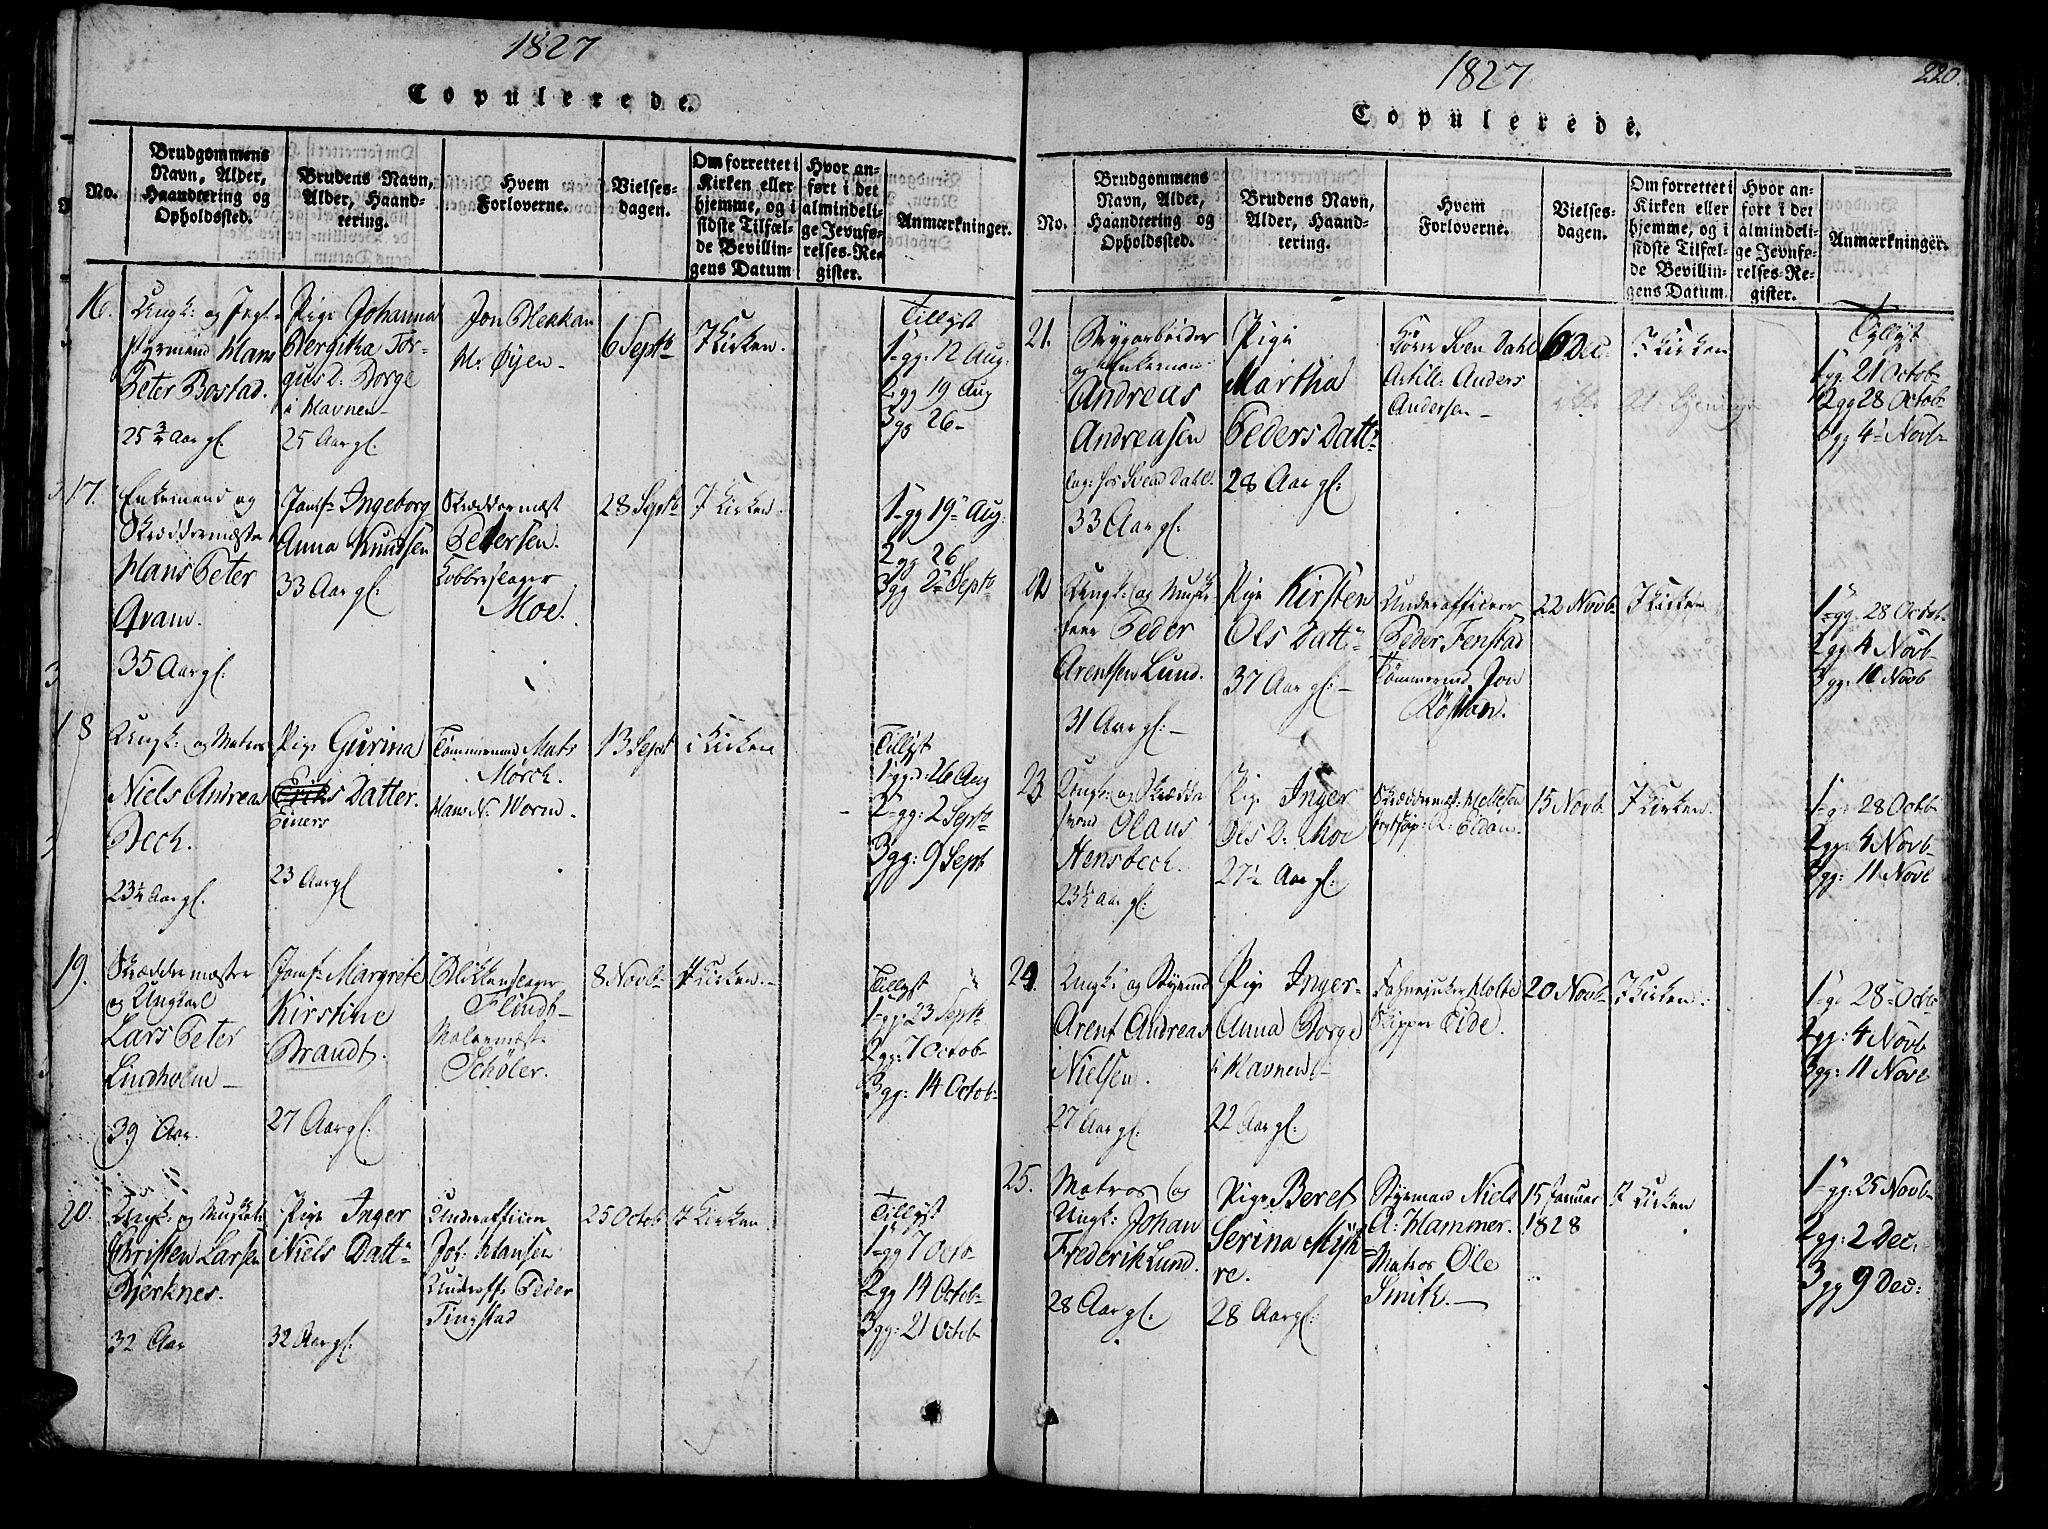 1827
Copulerede.
No.
Brudgommens
Navn, Alder,
Haandtering og
Opholdssted.
Brudens Navn,
Alder, Haand-
tering.
Hvem
Forloverne.
Vielses-
dagen.
Om forrettet i
Kirken eller
hjemme, og i
sidste Tilfæl-
de Bevillin-
gens Datum
Hvor an-
ført i det
almindeli-
ge Jevnfø-
relses-Re-
gister.
Anmærkninger.
16.
Ungk: og
Hans
Peter Bostad.
25 3/4 Aar gl.
Pige Johanna
Bergitha Tor-
gus D: Borge
i Havnen
25 Aar gl.
Jon Blekkan
M. Øyen
6 Septb
I Kirken.
Tillyst
1 gg: 12 Aug:
2 gg 19 Aug
3 gg 26
17.
Enkemand og
Skræddermæster
Hans Peter
Aram.
35 Aar gl.
Jomf Ingeborg
Anna Knudsen
33 Aar gl.
Skræddermæst
Petersen.
Kobberslager
Moe.
28 Septb
I Kirken
1 gg 19 Aug:
2 gg 26
3 gg 2 Septb
18
Ungk: og Matros
Niels Andreas
Beck.
23 1/4 Aar gl.
Pige Gurina
Eriks Datter.
Einers
23 Aar gl
Tømmermd Mats
Mørck.
Hans N. Worm
13 Sept
i Kirken
Tillyst
1 gg: 26 Aug
2 gg: 2 Septb
3 gg: 9 Sept
19.
Skræddermæster
og Ungkarl
Lars Peter
Lindholm
39 Aar.
Jomf Margrete
Kirstine
Brandt.
27 Aar gl.
Blikkenslager
Flindt
Malermæst
Schøler.
8 Novb
I Kirken.
Tillyst
1 gg: 23 Septb
2 gg: 7 Octob
3 gg: 14 Octob
20.
Ungk: og Musket:
Christen Larsen
Bjerknes.
32 Aar
Pige Inger
Niels Datt
32 Aar gl.
Underofficer
Joh: Hansen
Underoff: Peder
Tingstad
25 Octob
I Kirken.
Tillyst
1 gg 7 Octo
2 gg 14 Octob
3 gg: 21 Octob
1827
220.
Copulerede.
No.
Brudgommens
Navn, Alder,
Haandtering og
Opholdssted.
Brudens Navn,
Alder, Haand-
tering.
Hvem
Forloverne.
Vielses-
dagen.
Om forrettet i
Kirken eller
hjemme, og i
sidste Tilfæl-
de Bevillin-
gens Datum.
Hvor an-
ført i det
almindeli-
ge Jevnfø-
relses-Re-
gister.
Anmærkninger.
21.
Bryggarbeider
og Enkeman
Andreas
Andreasen
hos Svend Dahl.
33 Aar gl.
Pige
Martha
Peders Datt
28 Aar gl.
Sven Dahl
Artill: Anders
Andersen
6 Dec
I Kirken
Tyllyst
1 gg: 21 Octob
2 gg 28 Octob
3 gg 4 Novb
22
Ungk: og Muske
teer Peder
Arentsen Lund.
31 Aar gl.
Pige Kirsten
Ols Datt
37 Aar gl.
Underofficeer
Peder Fenstad
Tømmermd Jon
22 Novb
I Kirken
1 gg: 28 Octob
2 gg 4 Novb
3 gg: 11 Novb
23.
Ungk: og Skrædder
svend Olaus
Hensbeck.
23 1/2 Aar gl.
Pige Inger
Ols D: Moe
27 1/2 Aar gl.
Skræddermst: Mellesen
15 Novb
I Kirken
1 g: 28 Octb
2 gg: 4 Novb
3 gg: 11 Novb
24.
Ungk: og Styrmd
Arent Andreas
Nielsen.
27 Aar gl.
Pige Inger
Anna Borge
i Havnen
22 Aar gl.
Fahnejunker Molte
Skipper Eide.
20 Novb
I Kirken
1 g: 28 Octo
2 gg: 4 Novb
3 gg: 11 Novb
25.
Matros og
Ungk: Johan
Frederik Lund.
28 Aar gl.
Pige Beret
Serina Myh
re.
28 Aar gl.
Styrmand Niels
A: Hammer.
Matros Ole
Smith.
15 Januar
1828
I Kirken
1 gg: 25 Novb
2 gg: 2 Dec:
3 gg 9 Dec: